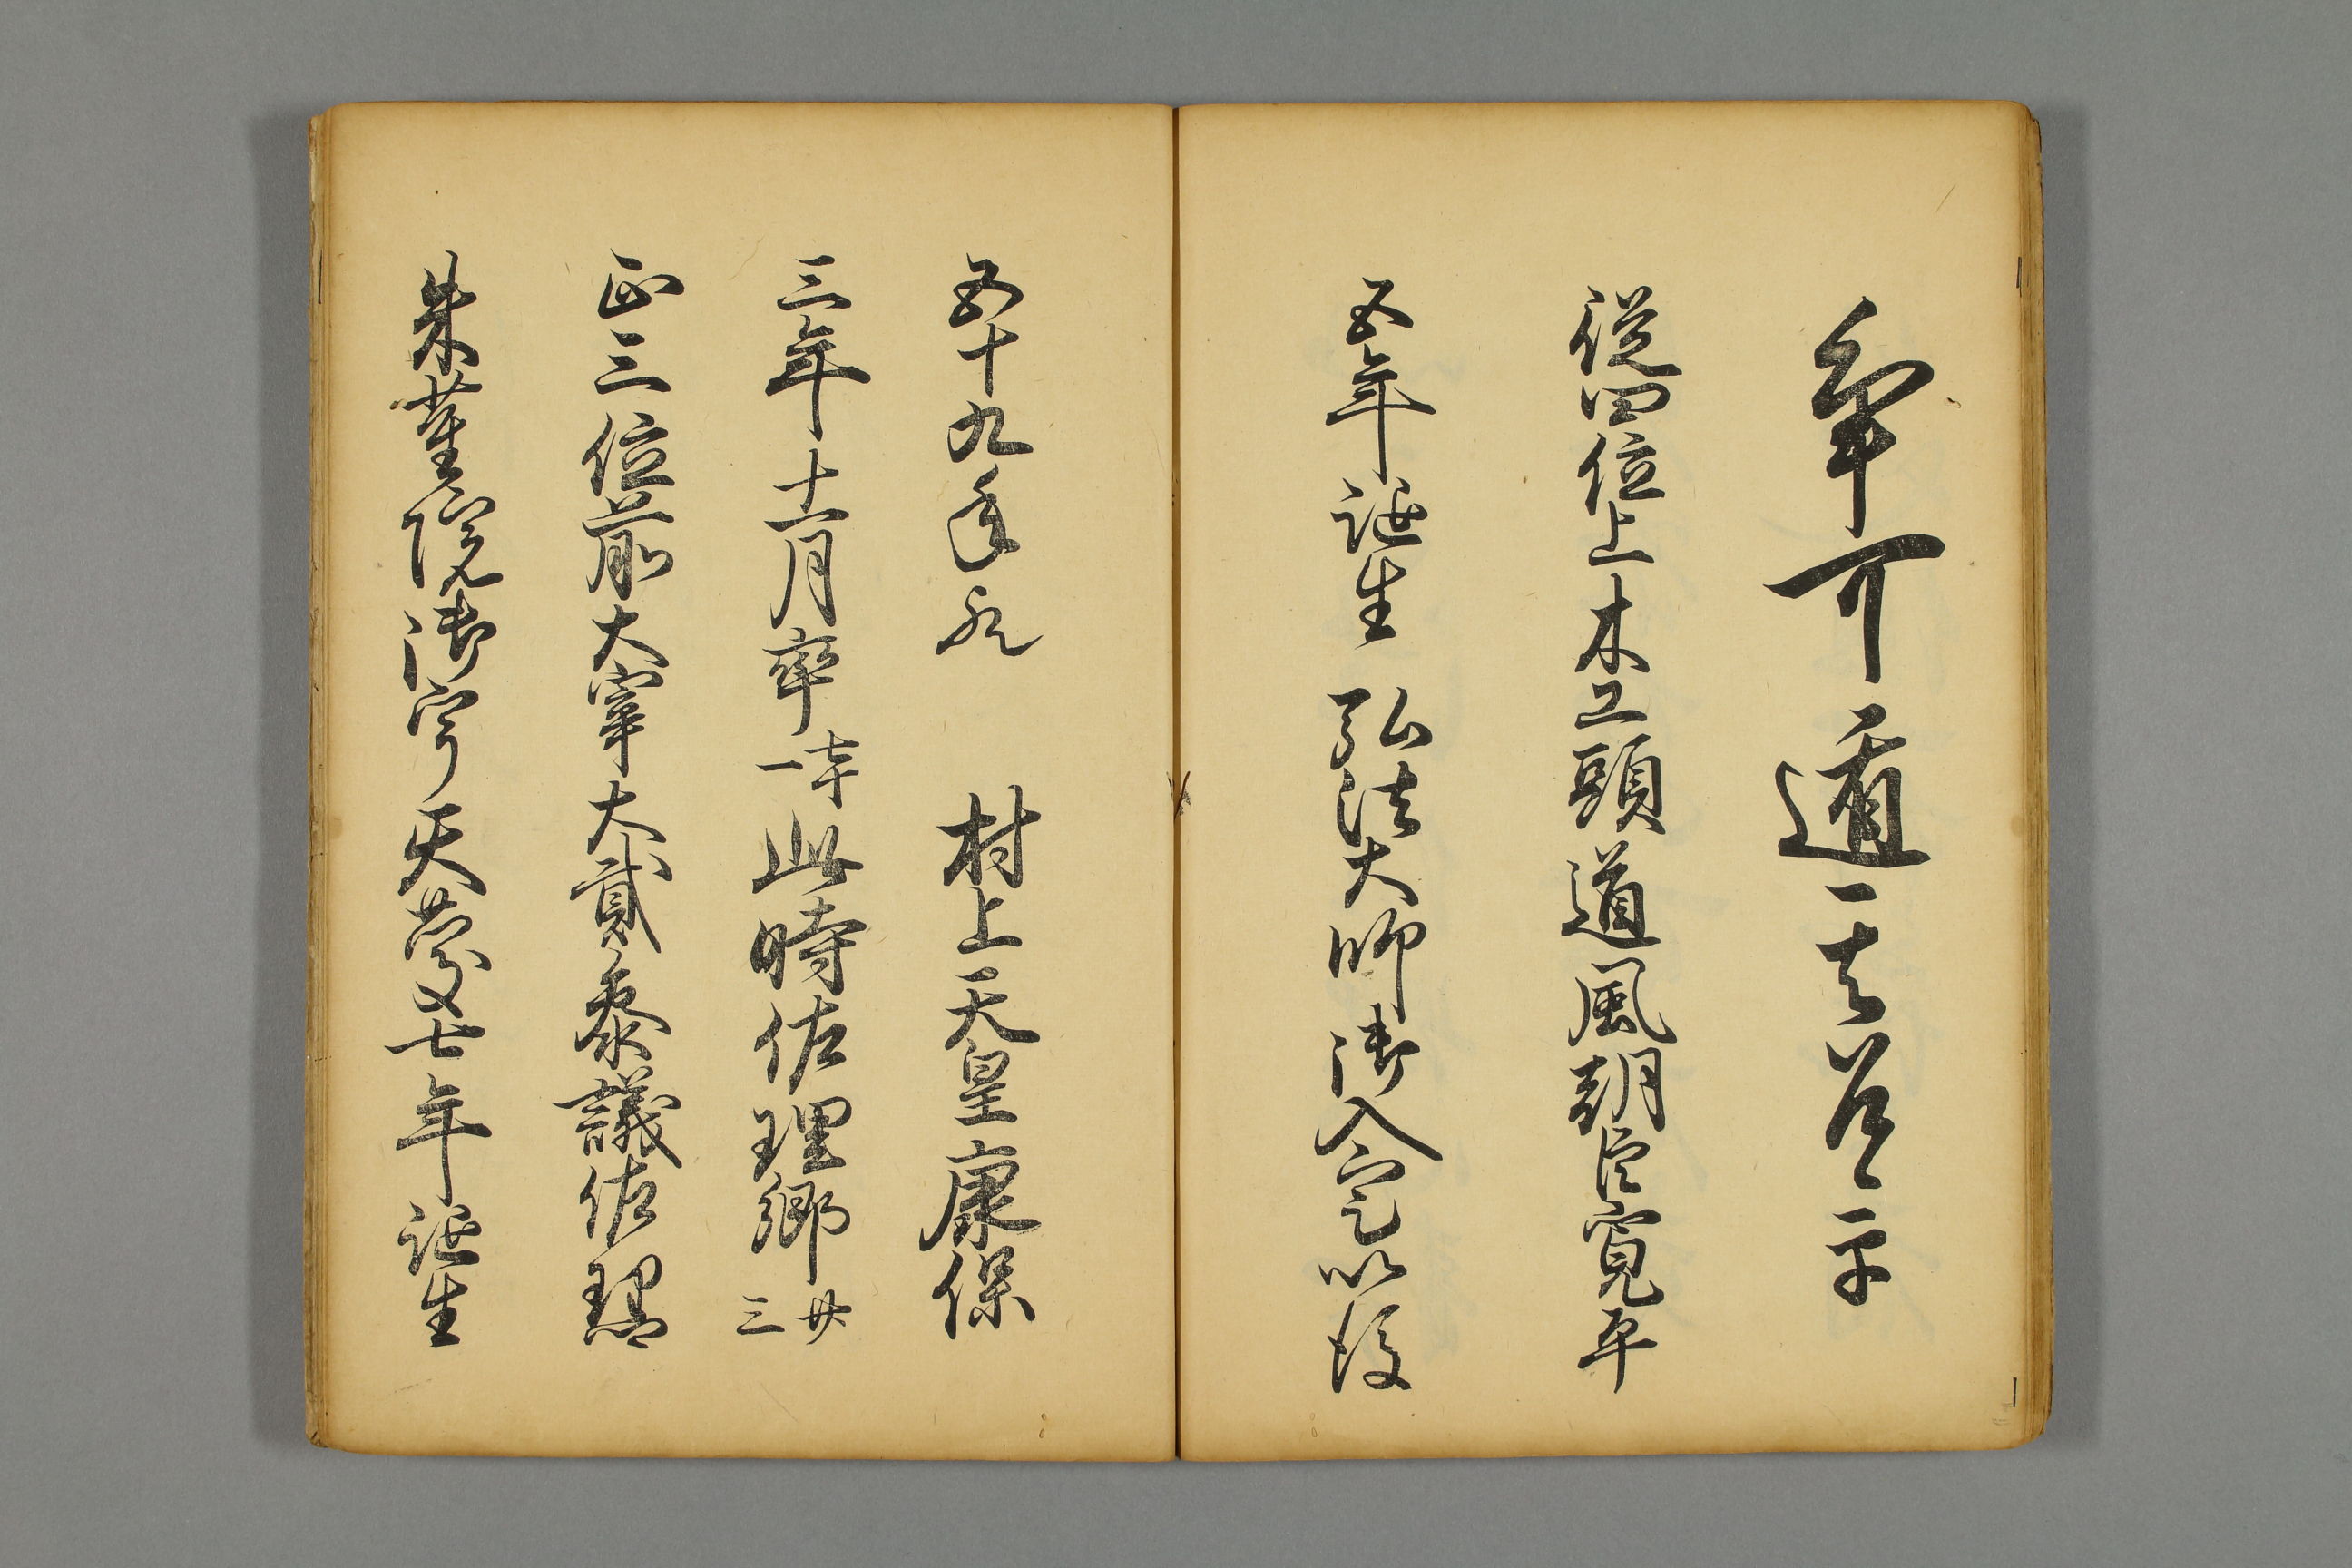 可遁
従四位上木工頭道風朝臣寛平
五年誕生 弘法大師御入定以後
五十九年 村上天皇康保
三年十二月卒七十一此時佐理卿廿三
正三位前大宰大貳参議佐理卿
朱雀院御宇天慶七年誕生